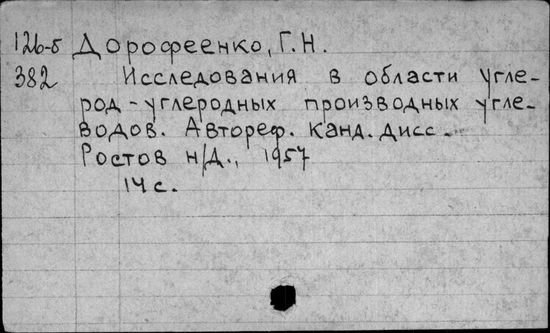 126-б Дорофеенко, Г.Н.
382 Исследования в области угле-
род-углеродных производных угле-
водов. Автореф. канд. дисс.
Ростов н/Д., 1957
14 с.